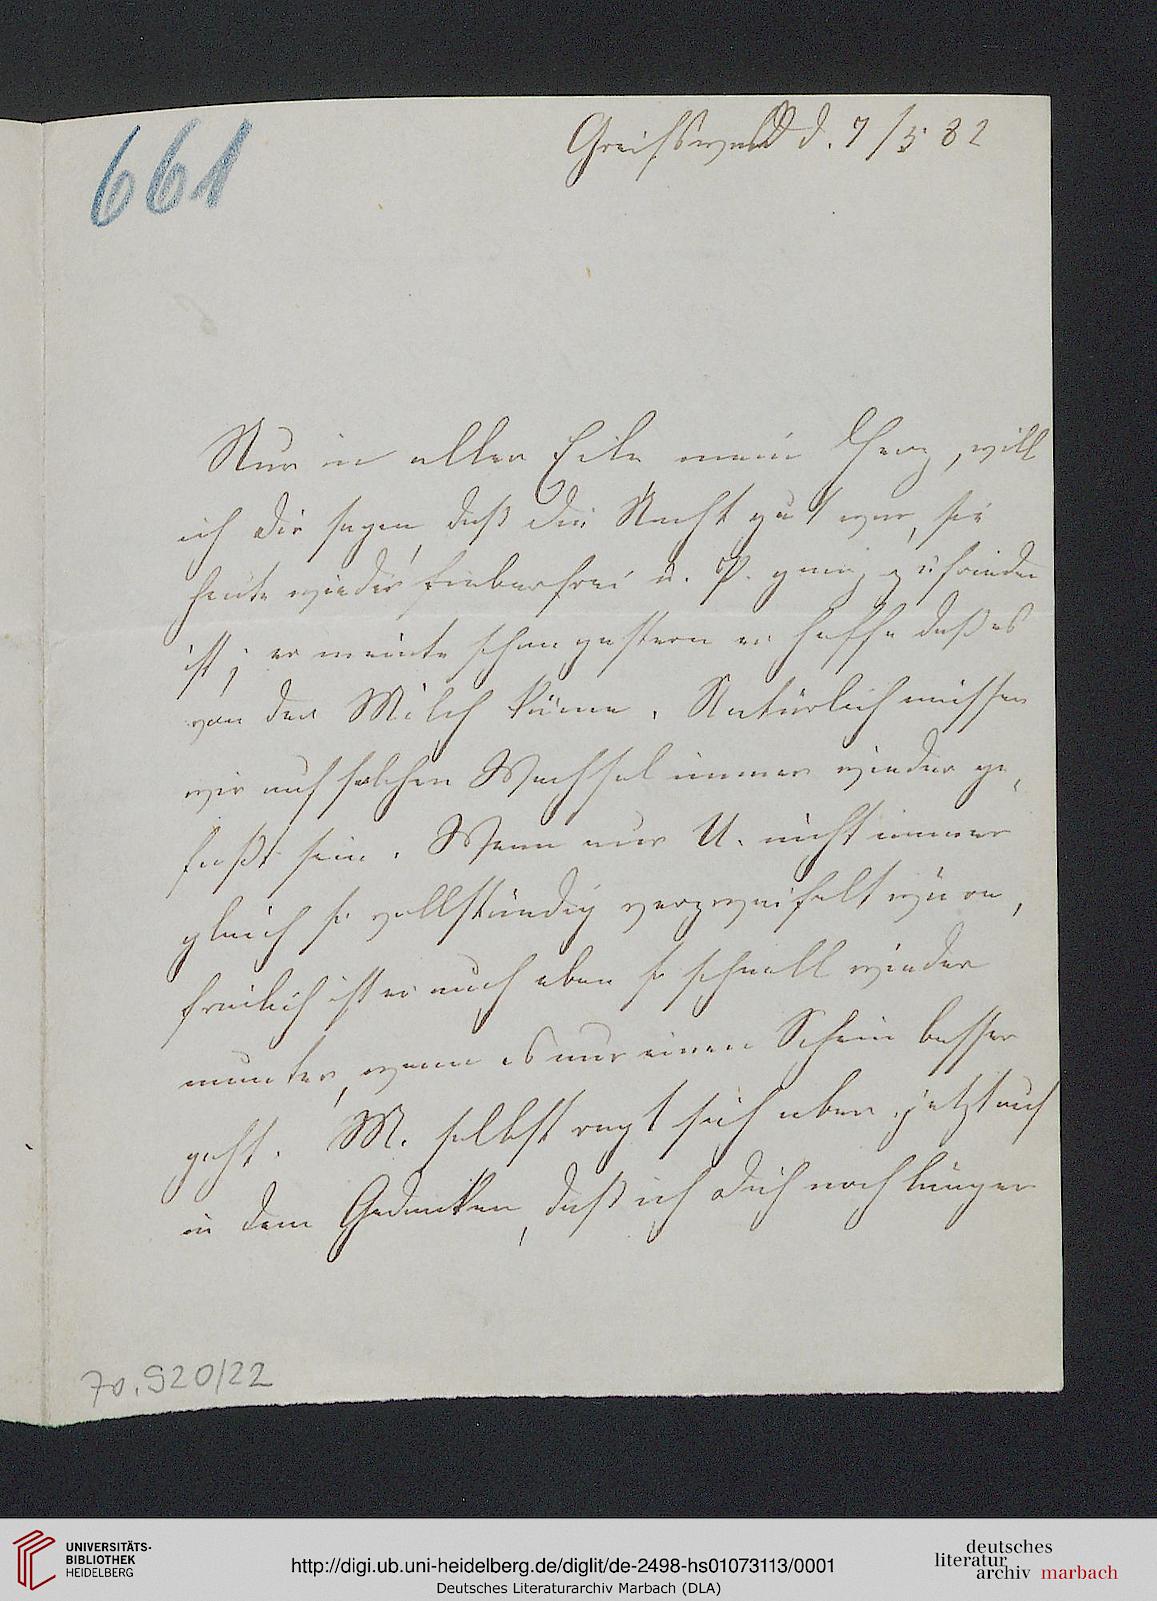 661
Greifswald d. 7/5 82
Nur in aller Eile mein Herz, will
ich Dir sagen, daß die Nacht gut war, sie
heute wieder fieberfrei u. P. ganz zufrieden
ist; er meinte schon gestern er hoffe daß es
von der Milch käme. Natürlich müssen
wir auf solchen Wechsel immer wieder ge-
faßt sein. Wenn nur U. nicht immer
gleich so vollständig verzweifelt wäre,
freilich ist er auch eben so schnell wieder
munter, wenn es nur einen Schein besser
geht. M. selbst regt sich aber jetzt auf
in dem Gedanken, daß ich Dich noch länger
70.920/22
UNIVERSITÄTS-
BIBLIOTHEK
HEIDELBERG
http://digi.ub.uni-heidelberg.de/diglit/de-2498-hs01073113/0001
Deutsches Literaturarchiv Marbach (DLA)
deutsches
literatur
archiv marbach